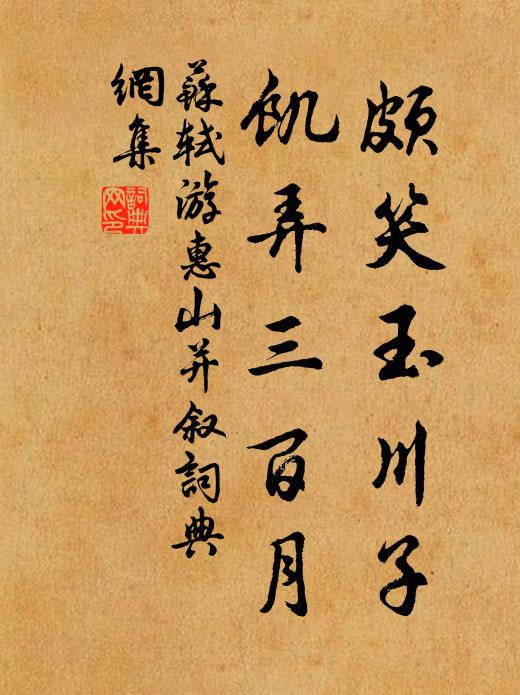 頗笑玉川子
飢弄三百月
蘇軾游惠山并叙詞典
網集
詞典網印